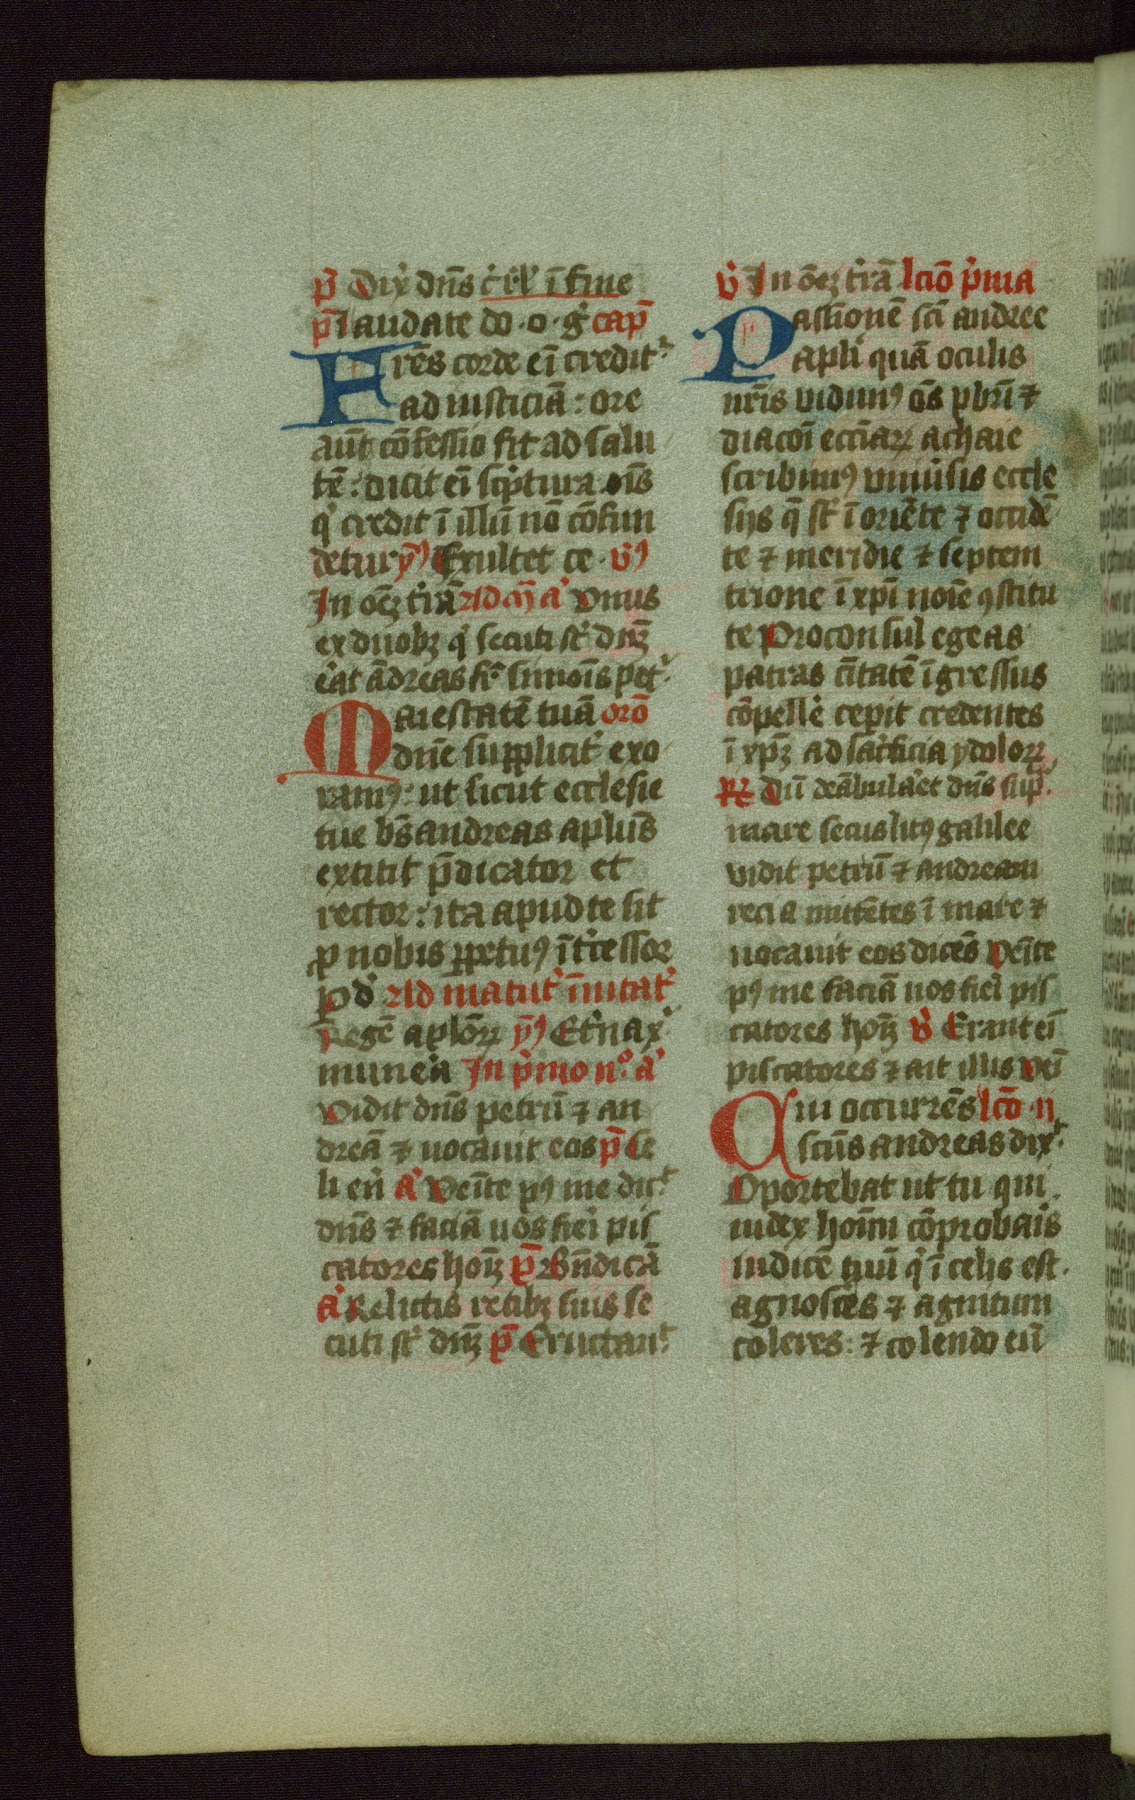 p̄ Dix̄ dn̄s
p̄ laudate do · o · g̓ cap̄
Fres corde eī credit᷑
ad iusticiā : ore
aut̄ cōfessio fit ad salu
tē : dicit eī sc̓ptura . oīs
q̓ credit ī illū nō cōfun
detur ȳ⁹ Exultet ce · v̓⁹
In oēʒ t̓rā Ad a̓ Vnus
ex duobʒ q̓ secuti st̄ dn̄ʒ
e̓at ādreas fr̄ simoīs pet᷑
Maiestatē tuā orō
dn̄e supplicit᷑ exo
ram⁹ : ut sicut ecclesie
tue bt̄s andreas aplūs
extitit p̄dicator et
rector : ita apud te sit
ꝓ nobis ꝑpetu⁹ īt̓cessor
p d̓ Ad matut᷑ īuitat᷑
Regē aplōꝝ ȳ⁹ Et̓na x᷑
mune̓a In p̓mo n⁰ a̓
Vidit dn̄s petrū ⁊ an
dreā ⁊ uocauit eos p̄ Ce
li en̓ a̓ Venīte p⁹ me dic᷑
dn̄s ⁊ faciā uos fie̓i pis
catores hoīʒ p̄ Bn̄dicā
a̓ Relictis retibʒ suis se
cuti st̄ dn̄ʒ p̄ Eructau᷑
v̓ In oēʒ t̓rā lcio̅ p̓ma
Passionē sc̄i andree
apl̓i quā oculis
nr̄is uidim⁹ oīs pb̄ri ⁊
diacoī eccīaꝝ achaie
scribim⁹ vniu̓sis eccle
sijs q̄ st̄ ī oriēte ⁊ occidē
te ⁊ meridie ⁊ septem
trione ī xp̄i noīe ꝯstitu
te Proconsul egeas
patras ciītatē īgressus
cōpelle̓ cepit credentes
ī xp̄ʒ ad sac̓ficia ydoloꝝ
℟ Dū deābula̓et dn̄s sup᷑
mare secus lit⁹ galilee
vidit petrū ⁊ andream
recia mittētes ī mare ⁊
uocauit eos dicēs Venīte
p⁹ me faciā uos fie̓i pis
catores hoīʒ v̓ Erant eī
piscatores ⁊ ait illis Veī
Cui occurrēs lcō · ii
scūs andreas dix᷑
Oportebat ut tu qui
iudex hoīm cōprobais
iudicē tuū q̓ ī celis est ·
agnosces ⁊ agnitum
coleres : ⁊ colendo eū